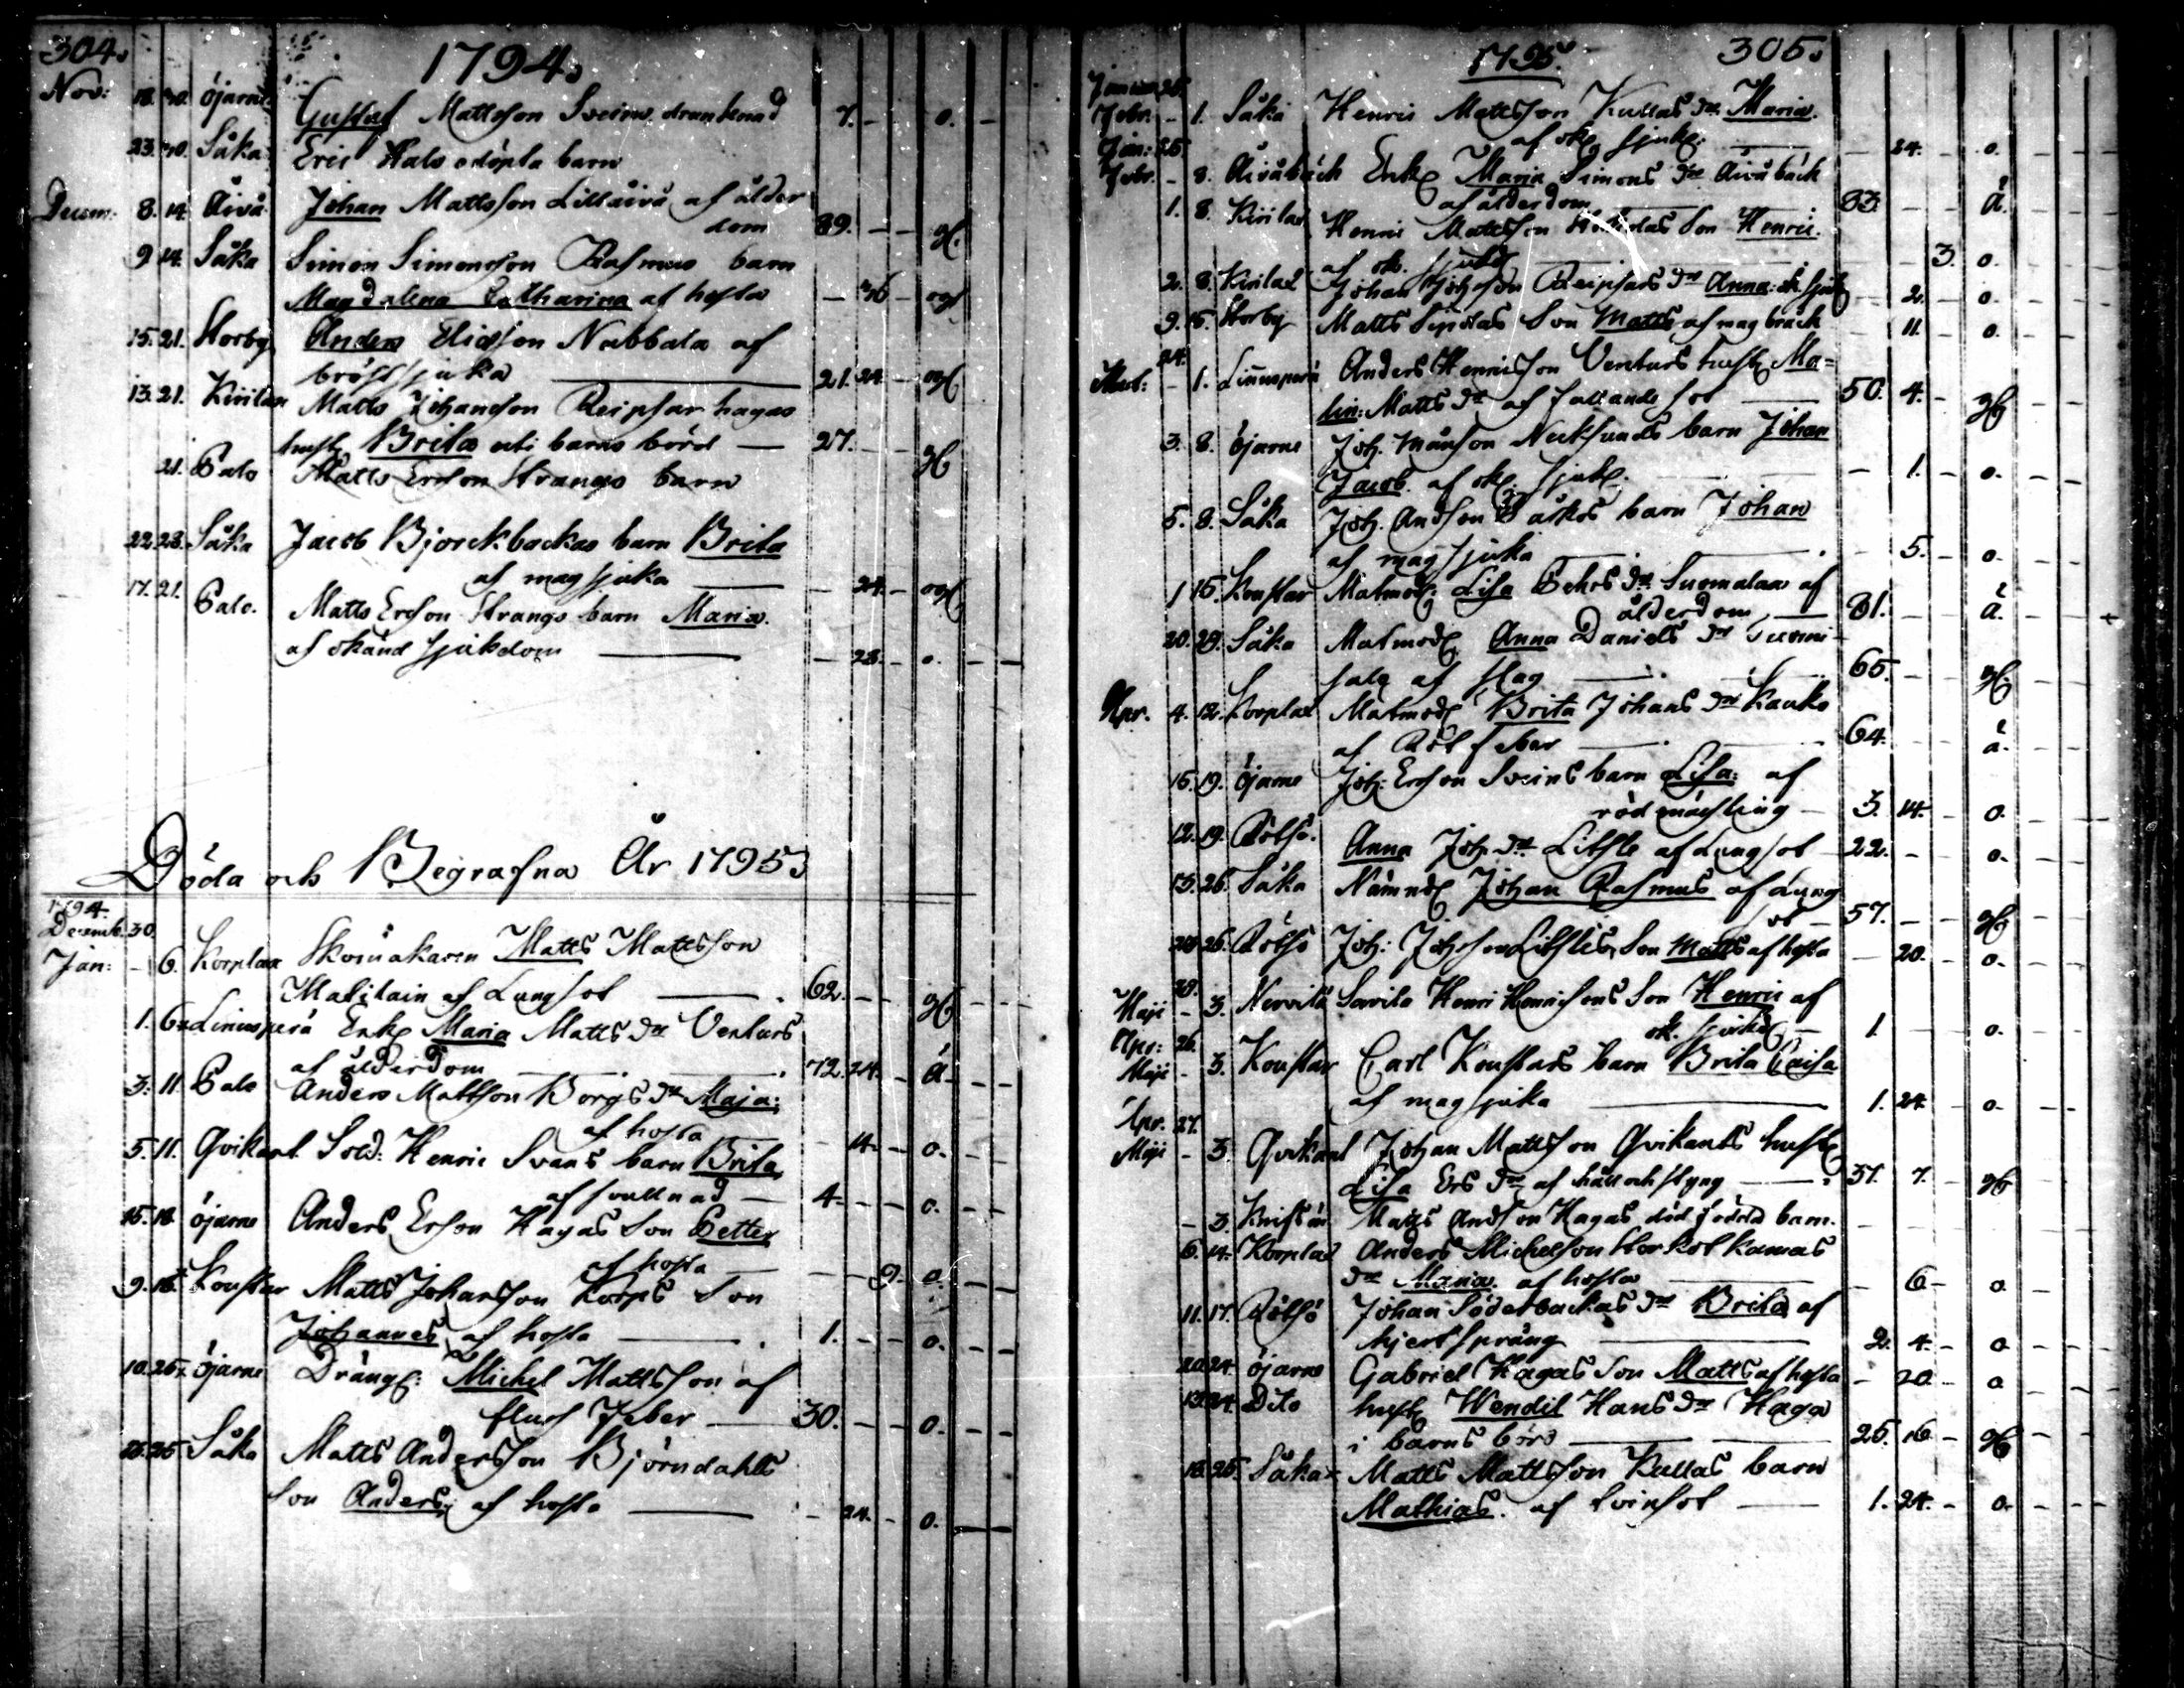 304.
1794.
Nov: 18. 30. öjarne Gustaf Mattsson Sveins drunknad 7. - o. -
23. 30. Såka Eric Hals odöpta barn
Decem: 8. 14 Åivå Johan Mattsson Lillåivå af ålder
dom 89. - - gl.
9. 14. Såka Simon Simonsson Rasmus barn
Magdalena Catharina af hosta - 36 - ogl
15. 21. Storby Anders Elidsson Nabbala af
bröstsjuka 21. 24. - ogl
13. 21. Kirilax Matts Johansson Reipsar hagas
hust. Brita uti barns börd 27. - - gl
21. Palo Matts Ersson Strangs barn
22. 28. Såka Jacob Bjorckbackas barn Brita
af magsjuka - 24. - ogl.
17. 21. Palo. Matts Ersson Strangs barn Maria.
af okänd sjukdom - 28. - o. - -
Döda och Begrafna År 1795
1794.
Decemb. 30.
Jan: - 6. Korplax Skomakaren Matts Mattsson
Malilain af Lungsot 62. - - gl.
1. 6. Linnuspera Enk. Maria Matts dr Venturs
af ålderdom 72. 24. - Ä
3. 11. Palo Anders Mattsson Borgs dr Maja:
af hosta - 4. - o.
5. 11. Qvikant Sold: Henric Svans barn Brita
af svullnad 4. - - o.
15. 18. öjarne Anders Ersson Hagas Son Petter
af hosta - - 9. o.
9. 18. Konstar Matts Johansson Korps Son
Johannes af hosta 1. - - o.
10. 25. öjarne Dräng: Michel Mattsson af
fluss Feber 30. - - o.
25. Såka Matts Andersson Björndahls
Son Anders, af hosta - 24. - o.
1795.
305.
Januari 26.
Febr. - 1. Såka Henric Mattsson Kullas dr Maria.
af ok. sjukd. - 24. - o.
Jan: 26
Febr. - 8. Åivåbäck Enk. Maria Simons dr Åivåbäck
af ålderdom 83. - - Å.
1. 8. Kirilax Henric Mattsson Son Henric.
af ok. sjukd. 3. o.
2. 8. Kirilax Johan Johsson Reipsars dr Anna: ok. sjukd. - 2. - o.
9. 15. Storby Matts Son Matts af mag bråck - 11. - o.
24.
Mart: - 1. Linnuspera Anders Henricsson Venturs hust. Ma=
lin: Matts dr af fallande sot 50. 4. - gl.
3. 8. öjarne Joh. Månsson Necksunds barn Johan
Jacob. af ok. sjukd. - 1. - o.
5. 8. Såka Joh. Andsson barn Johan
af magsjuka - 5. - o.
1 15. Konstar Matmod. Lisa Pehrs dr Suomalax af
ålderdom 81. - Å.
20. 29. Såka Matmod. Anna Daniels dr Turmi-
sala af slag 65. - gl.
Apr. 4. 12. Korplax Matmod. Brita Johans dr Kauko
af Röt feber 64. - å.
15. 19. öjarne Joh. Ersson Sveins barn Lisa: af
röd mässling 3. 14. - o.
12. 19. Rölsö. Anna Joh. dr Lillsle af Lungsot 22. - - o.
13. 26. Såka Nämnd. Johan Rasmus af Lung
sot 57. - - gl.
20. 26. Rölsö Joh: Johsson Son Matts af hosta - 20. - o.
29.
Maji - 3. Nervilä Savila Henri Henricsons Son Henric af
ok. sjukd. 1 - - o.
Apr: 26
Maji - 3. Konstar Carl Konstars barn Brita Caisa
af magsjuka 1. 24. - o.
Apr. 27.
Maji - 3. Qvikant Johan Mattsson Qvikants hust.
Lisa Ers dr af håll och styng 37. 7. - gl
- 3. Knifsån Matts Andsson Hagas död födda barn.
6. 14. Korplax Anders Michelsson Storkolkamas
dr Maria. af hosta - 6 - o
11. 17. Rölsö Johan Söderbackas dr Brita af
hjertsprång 2. 4. - o
20. 24. öjarne Gabriel Hagas Son Matts af hosta - 20. - o
19. 24. Dito hust. Wendil Hans dr Haga
i barns börd 25. 16 - gl
18. 25. Såka Matts Mattsson Kullas barn
Mathias. af tvinsot 1. 24. - o.